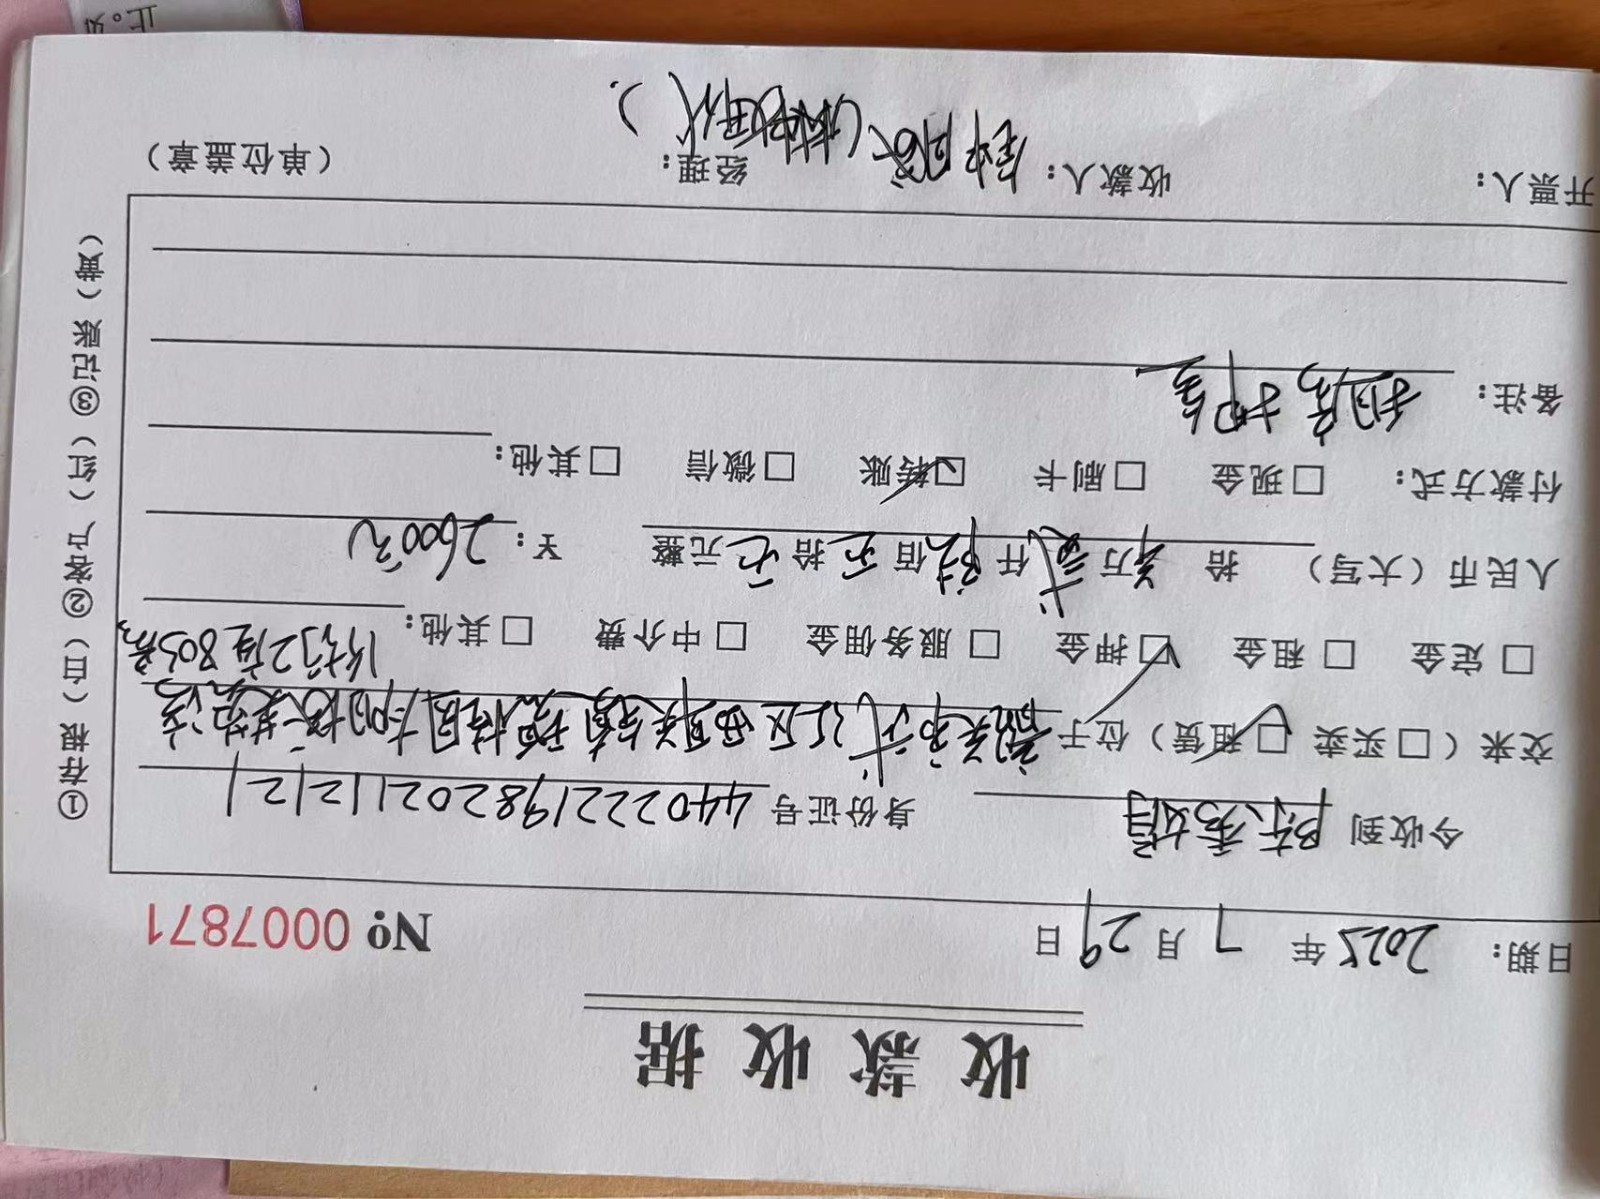 收款收据
日期： 2025 年 7 月 29 日 № 0007871
今收到 陈秀娟 身份证号 440222198202111212
交来（□买卖 ☑租赁）位于 韶关市武江区西联关韶
□定金 □租金 ☑押金 □服务佣金 □中介费 □其他： 1栋2座803房
人民币（大写） 拾 零 万 贰 仟 陆 佰 零 拾 零 元整 ￥： 2600元
付款方式： □现金 □刷卡 ☑转账 □微信 □其他：
备注： 租房押金
开票人： 收款人： 经理： （单位盖章）
①存根（白）②客户（红）③记账（黄）